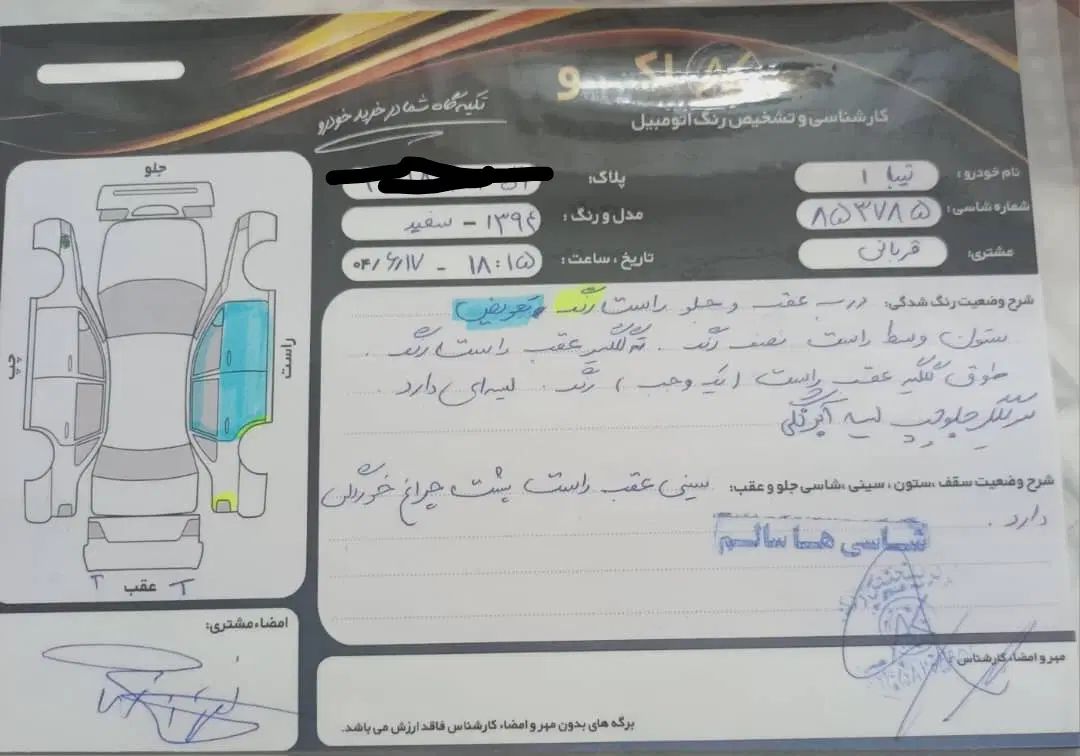 کارشناسی و تشخیص رنگ اتومبیل
تکیه گاه شما در خرید خودرو
نام خودرو: تیبا ۱
پلاک:
شماره شاسی: ۸۵۳۷۸۵
مدل و رنگ: ۱۳۹۴ - سفید
مشتری: قربانی
تاریخ، ساعت: ۱۸:۱۵ - ۰۴/۶/۱۷
جلو
راست
چپ
عقب
T T
شرح وضعیت رنگ شدگی: درب عقب و جلو راست رنگ تعویض
ستون وسط راست نصف رنگ . گلگیر عقب راست رنگ .
طوق گلگیر عقب راست (یک وجب) رنگ . لیسه‌ای دارد .
گلگیر جلو چپ لیسه گیری
شرح وضعیت سقف، ستون، سینی، شاسی جلو و عقب: سینی عقب راست پشت چراغ خوردگی
دارد .
شاسی ها سالم
امضاء مشتری:
مهر و امضاء کارشناس
برگه های بدون مهر و امضاء کارشناس فاقد ارزش می باشد.